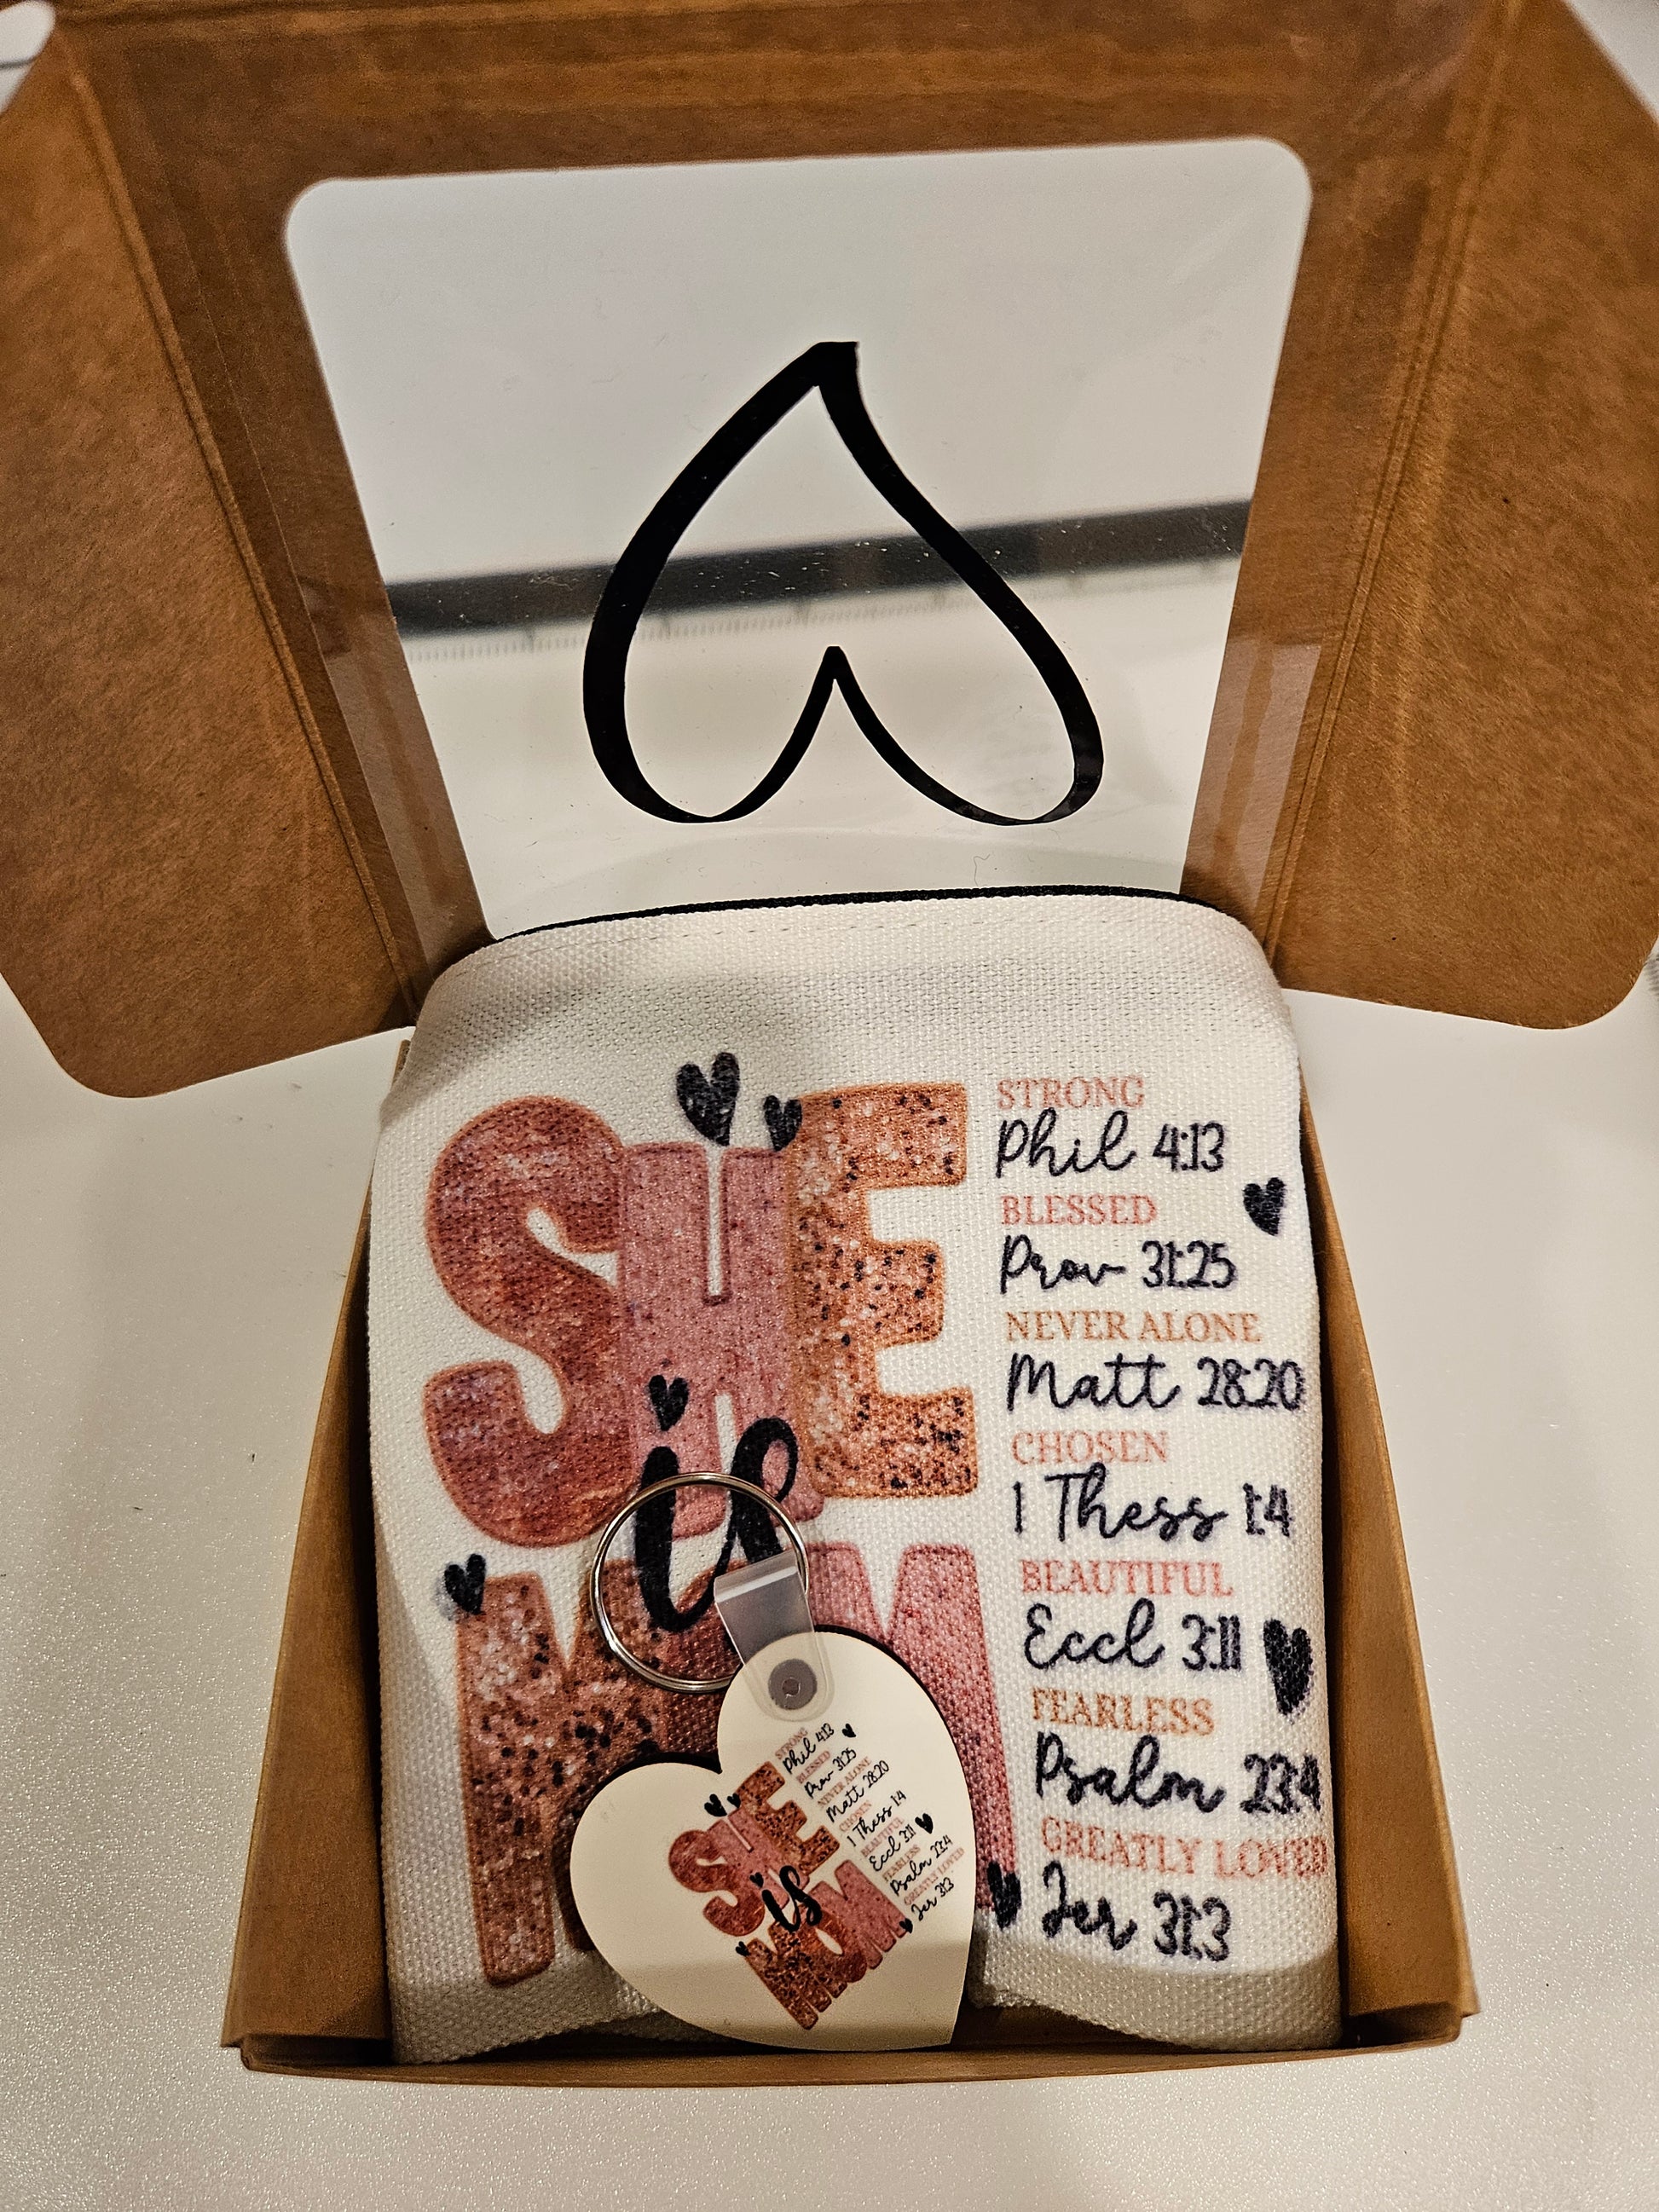 SHE
is
MOM
STRONG
Phil 4:13
BLESSED
Prov 31:25
NEVER ALONE
Matt 28:20
CHOSEN
1 Thess 1:4
BEAUTIFUL
Eccl 3:11
FEARLESS
Psalm 23:4
GREATLY LOVED
Jer 31:3
SHE
is
MOM
STRONG
Phil 4:13
BLESSED
Prov 31:25
NEVER ALONE
Matt 28:20
CHOSEN
1 Thess 1:4
BEAUTIFUL
Eccl 3:11
FEARLESS
Psalm 23:4
GREATLY LOVED
Jer 31:3